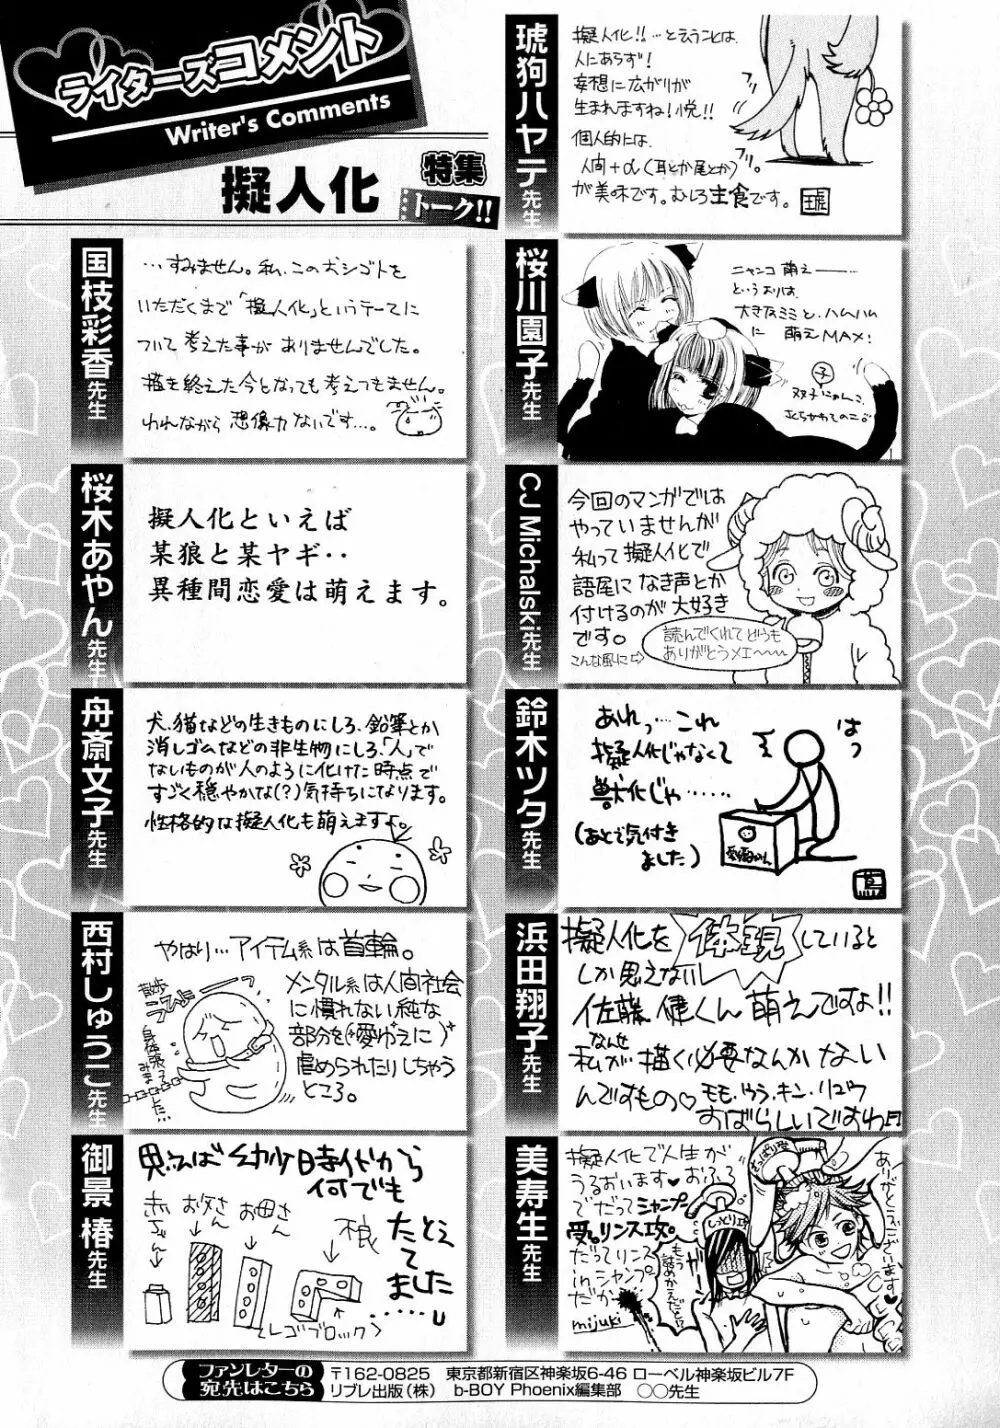 ライターズコメント
Writer's Comments
擬人化
特集
トーク!!
国枝彩香先生
…すみません。私、このおシゴトを
いただくまで「擬人化」というテーマに
ついて考えた事がありませんでした。
描き終えた今となっても考えつきません。
われながら想像力ないです…。
桜木あやん先生
擬人化といえば
某狼と某ヤギ‥
異種間恋愛は萌えます。
舟斎文子先生
犬、猫などの生きものにしろ、鉛筆とか
消しゴムなどの非生物にしろ、「人」で
ないものが人のように化けた時点で
すごく穏やかな(?)気持ちになります。
性格的な擬人化も萌えますよ。
西村しゅうこ先生
やはり…アイテム系は首輪。
メンタル系は人間社会
に慣れない純な
部分を(愛ゆえに)
虐められたりしちゃう
ところ。
散歩
御景椿先生
思えば幼少時代から
何でも
たとえ
てました
……
赤ちゃん
お父さん
お母さん
不良
(レゴブロック)
琥狗ハヤテ先生
擬人化!!…と云うことは、
人にあらず!
妄想に広がりが
生まれますね!悦!!
個人的には、
人間+α(耳とか尾とか)
が美味です。むしろ主食です。
琥
桜川園子先生
ニャンコ萌え―――…
というよりは、
大きなミミと、ハムハム
に萌えMAX!
双子にゃんこ、
CJ Michalski先生
今回のマンガでは
やっていませんが
私って擬人化で
語尾になき声とか
付けるのが大好き
です。
こんな風に⇨
読んでくれてどうも
ありがとうメェ~~~
鈴木ツタ先生
あれっ…これ
擬人化じゃなくて
獣化じゃ……
(あとで気付き
ました)
はっ
浜田翔子先生
擬人化を体現していると
しか思えない!!
佐藤健くん萌えですよ!!
なんぜ
私が描く必要なんかない
んですもの♡モモ・ウラ・キン・リュウ
すばらしいですわ♬
美寿生先生
擬人化で人生が
うるおいます♥おふろ
でだってシャンプー
受。リンス攻。
だってリンス
inシャンプー
だから
mijuki
さっぱり受
しっとり攻
ありがとうございます♥
ファンレターの
宛先はこちら
〒162-0825　東京都新宿区神楽坂6-46 ローベル神楽坂ビル7F
リブレ出版(株)　b-BOY Phoenix編集部　○○先生